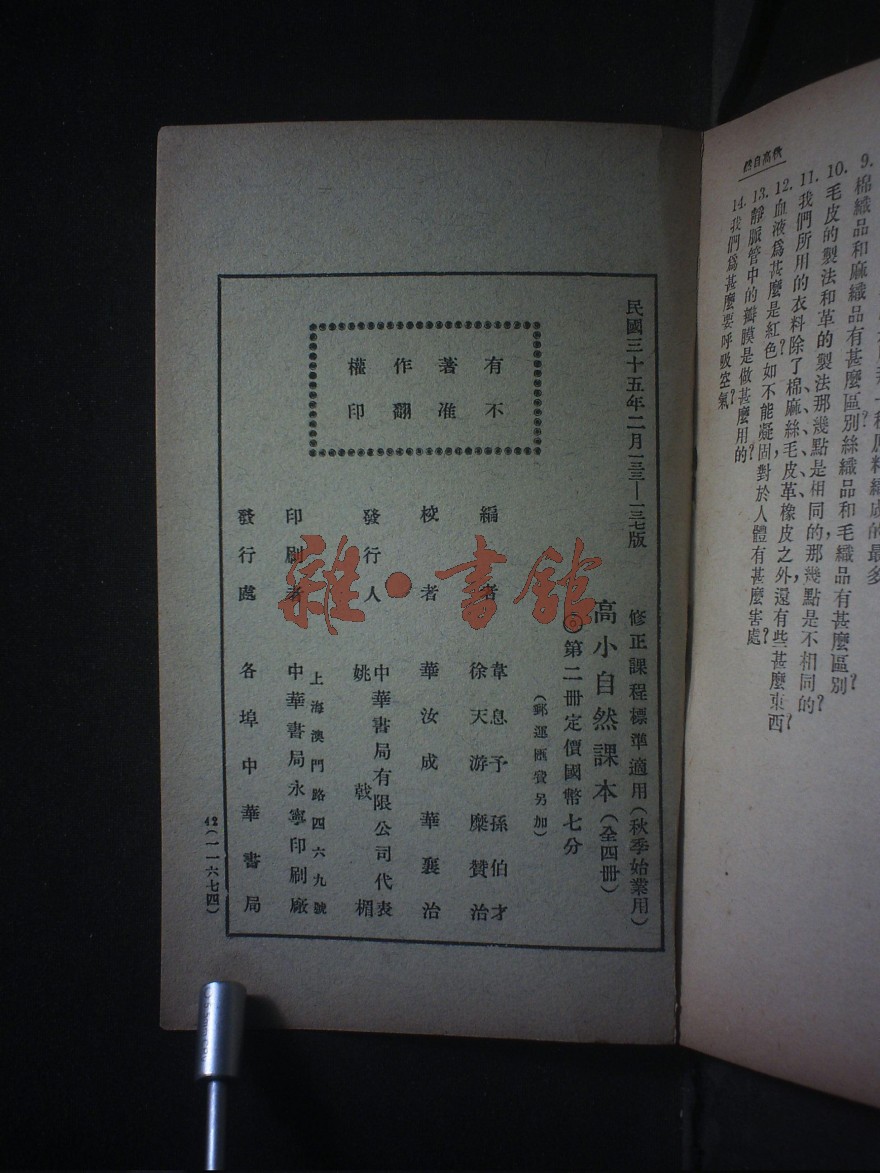 秋高自然
9.棉織品和麻織品有甚麼區別?絲織品和毛織品有甚麼區別?
10.毛皮的製法和革的製法,那幾點是相同的?那幾點是不相同的?
11.我們所用的衣料,除了棉、麻、絲、毛、皮革、橡皮之外,還有些甚麼東西?
12.血液爲甚麼是紅色?如不能凝固,對於人體有甚麼害處?
13.靜脈管中的瓣膜是做甚麼用的?
14.我們爲甚麼要呼吸空氣?
民國三十五年二月一三三—一三七版
有著作權
不准翻印
修正課程標準適用(秋季始業用)
高小自然課本(全四册)
◎第二册定價國幣七分
(郵運匯費另加)
編者
韋息予 孫伯才
徐天游 糜贊治
校者 華汝成 華襄治
發行人
中華書局有限公司代表
姚戟楣
印刷者
上海澳門路四六九號
中華書局永寧印刷廠
發行處 各埠中華書局
42(一一六七四)
雜·書館